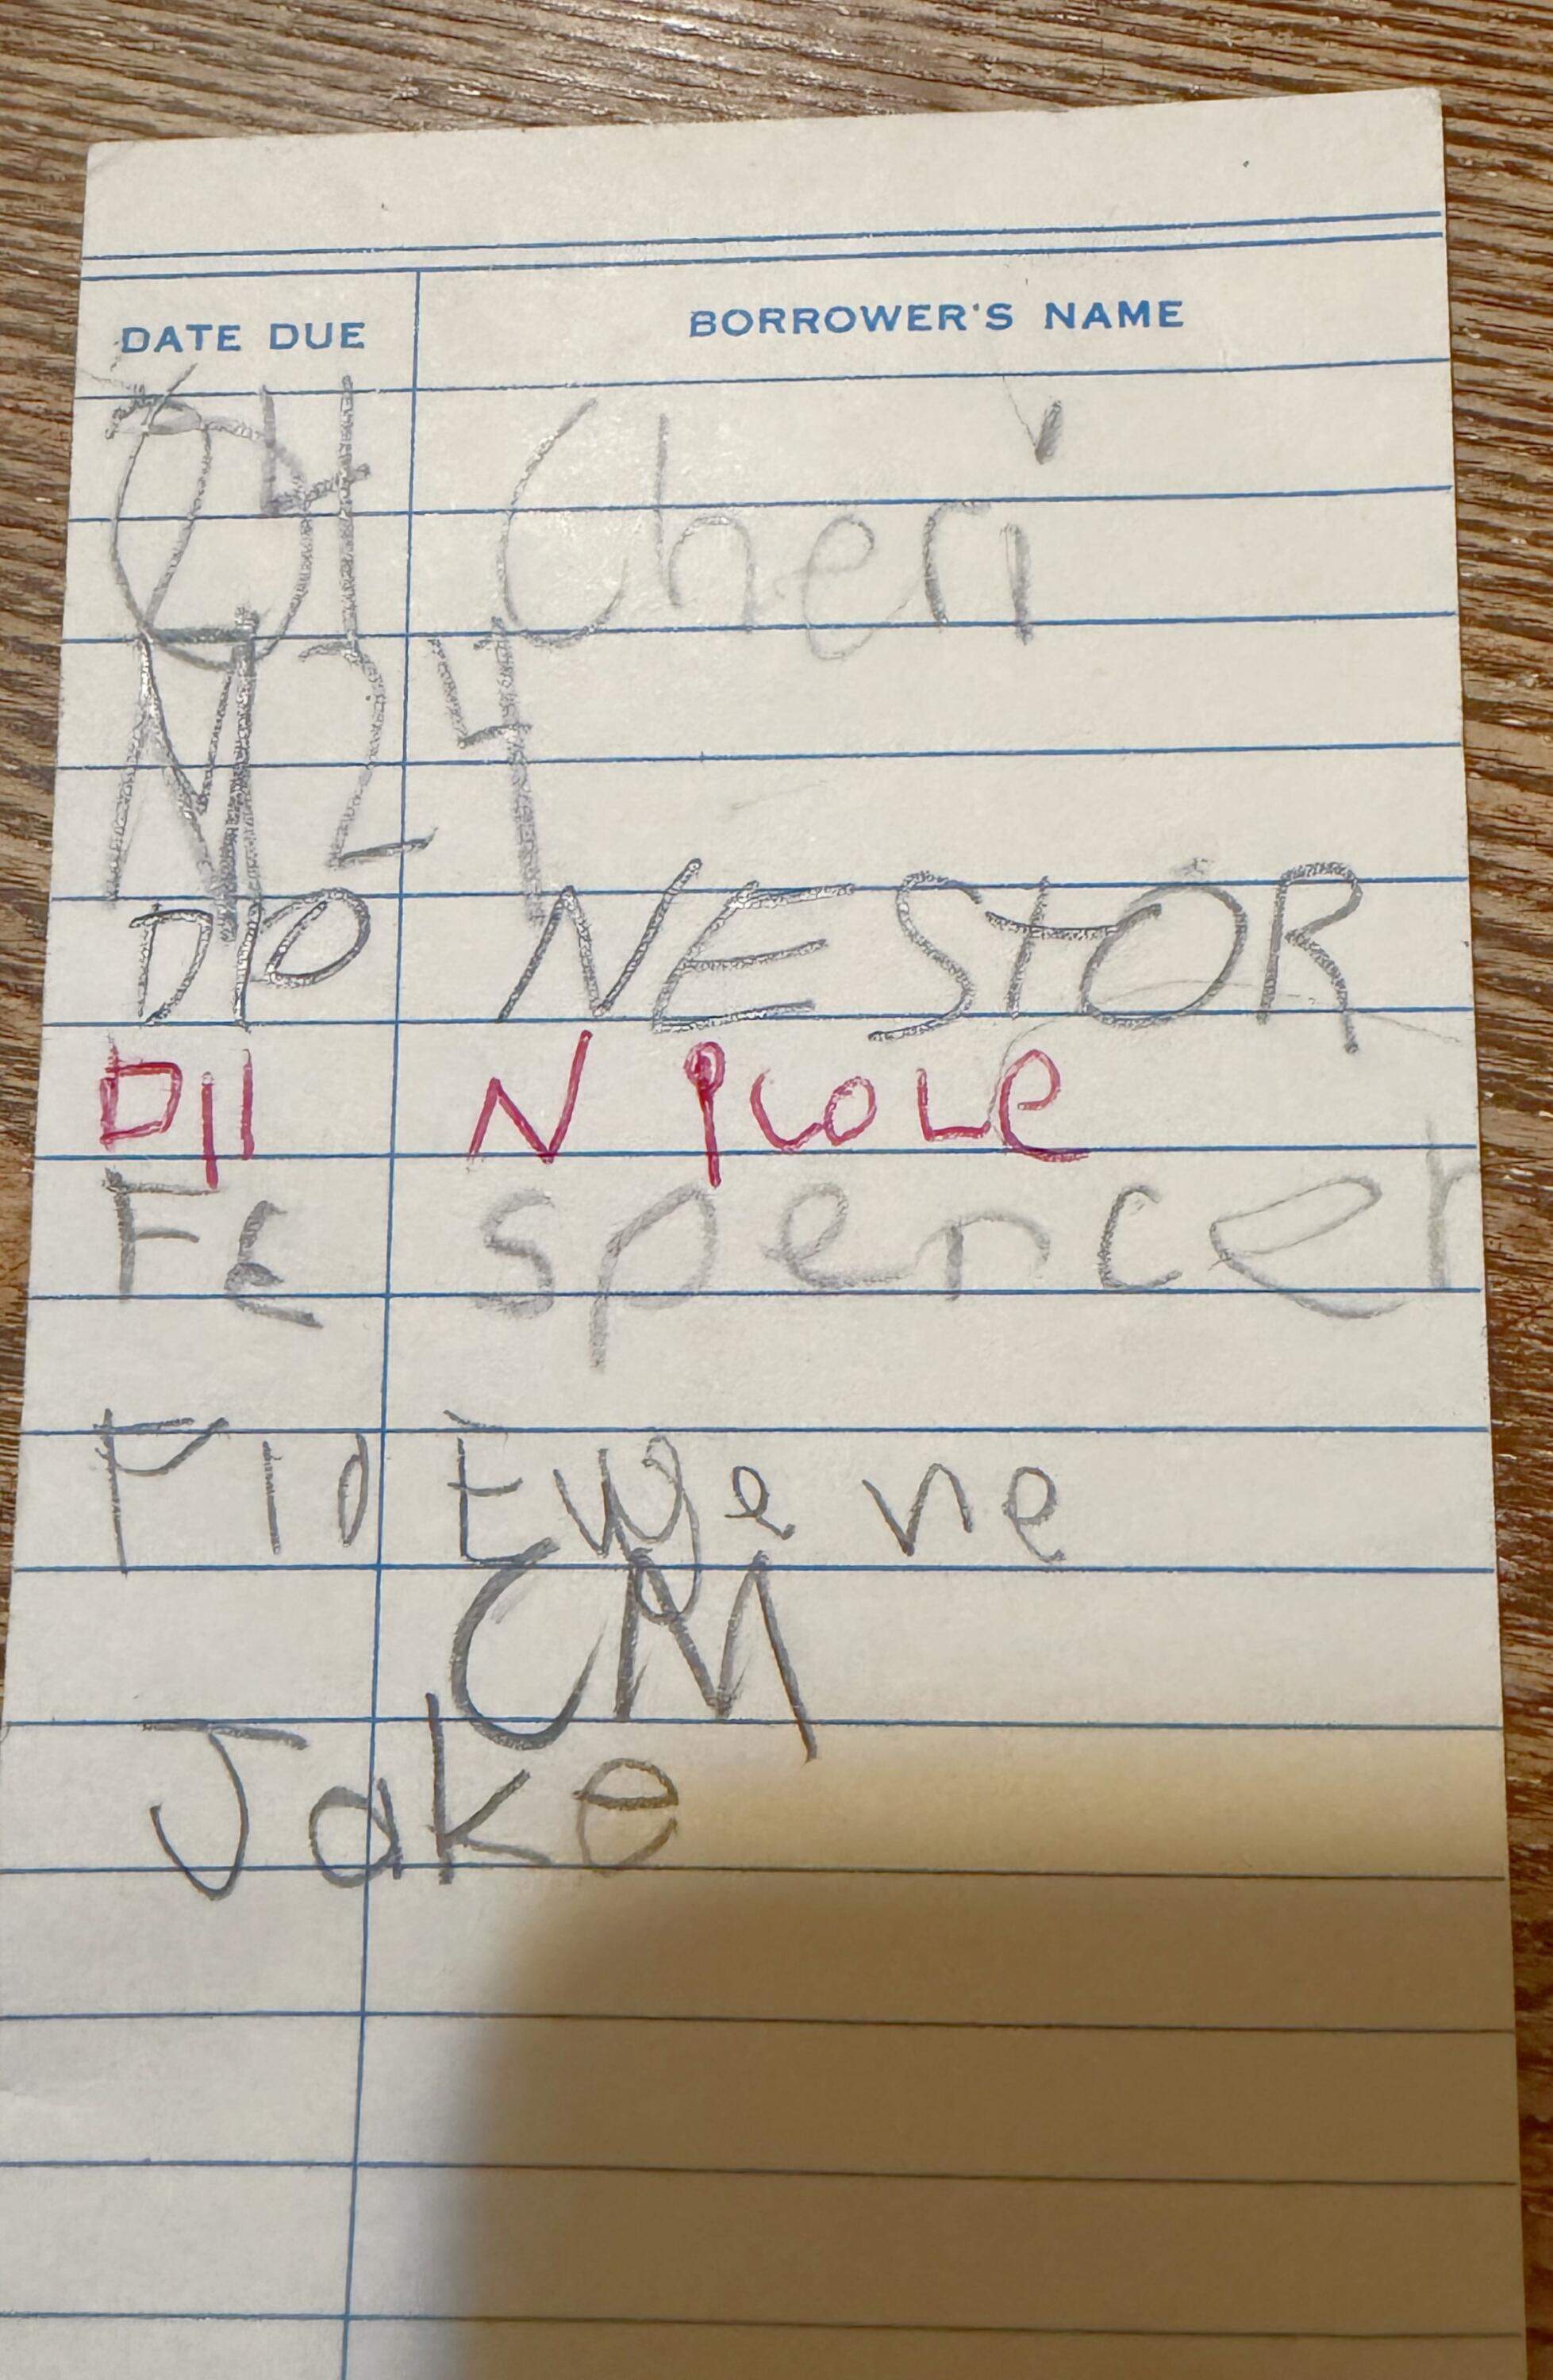 DATE DUE BORROWER'S NAME
O4 Cheri
N24
D10 NESTOR
D11 NicoLe
F6 spencer
M10 Eugene
CM
Jake